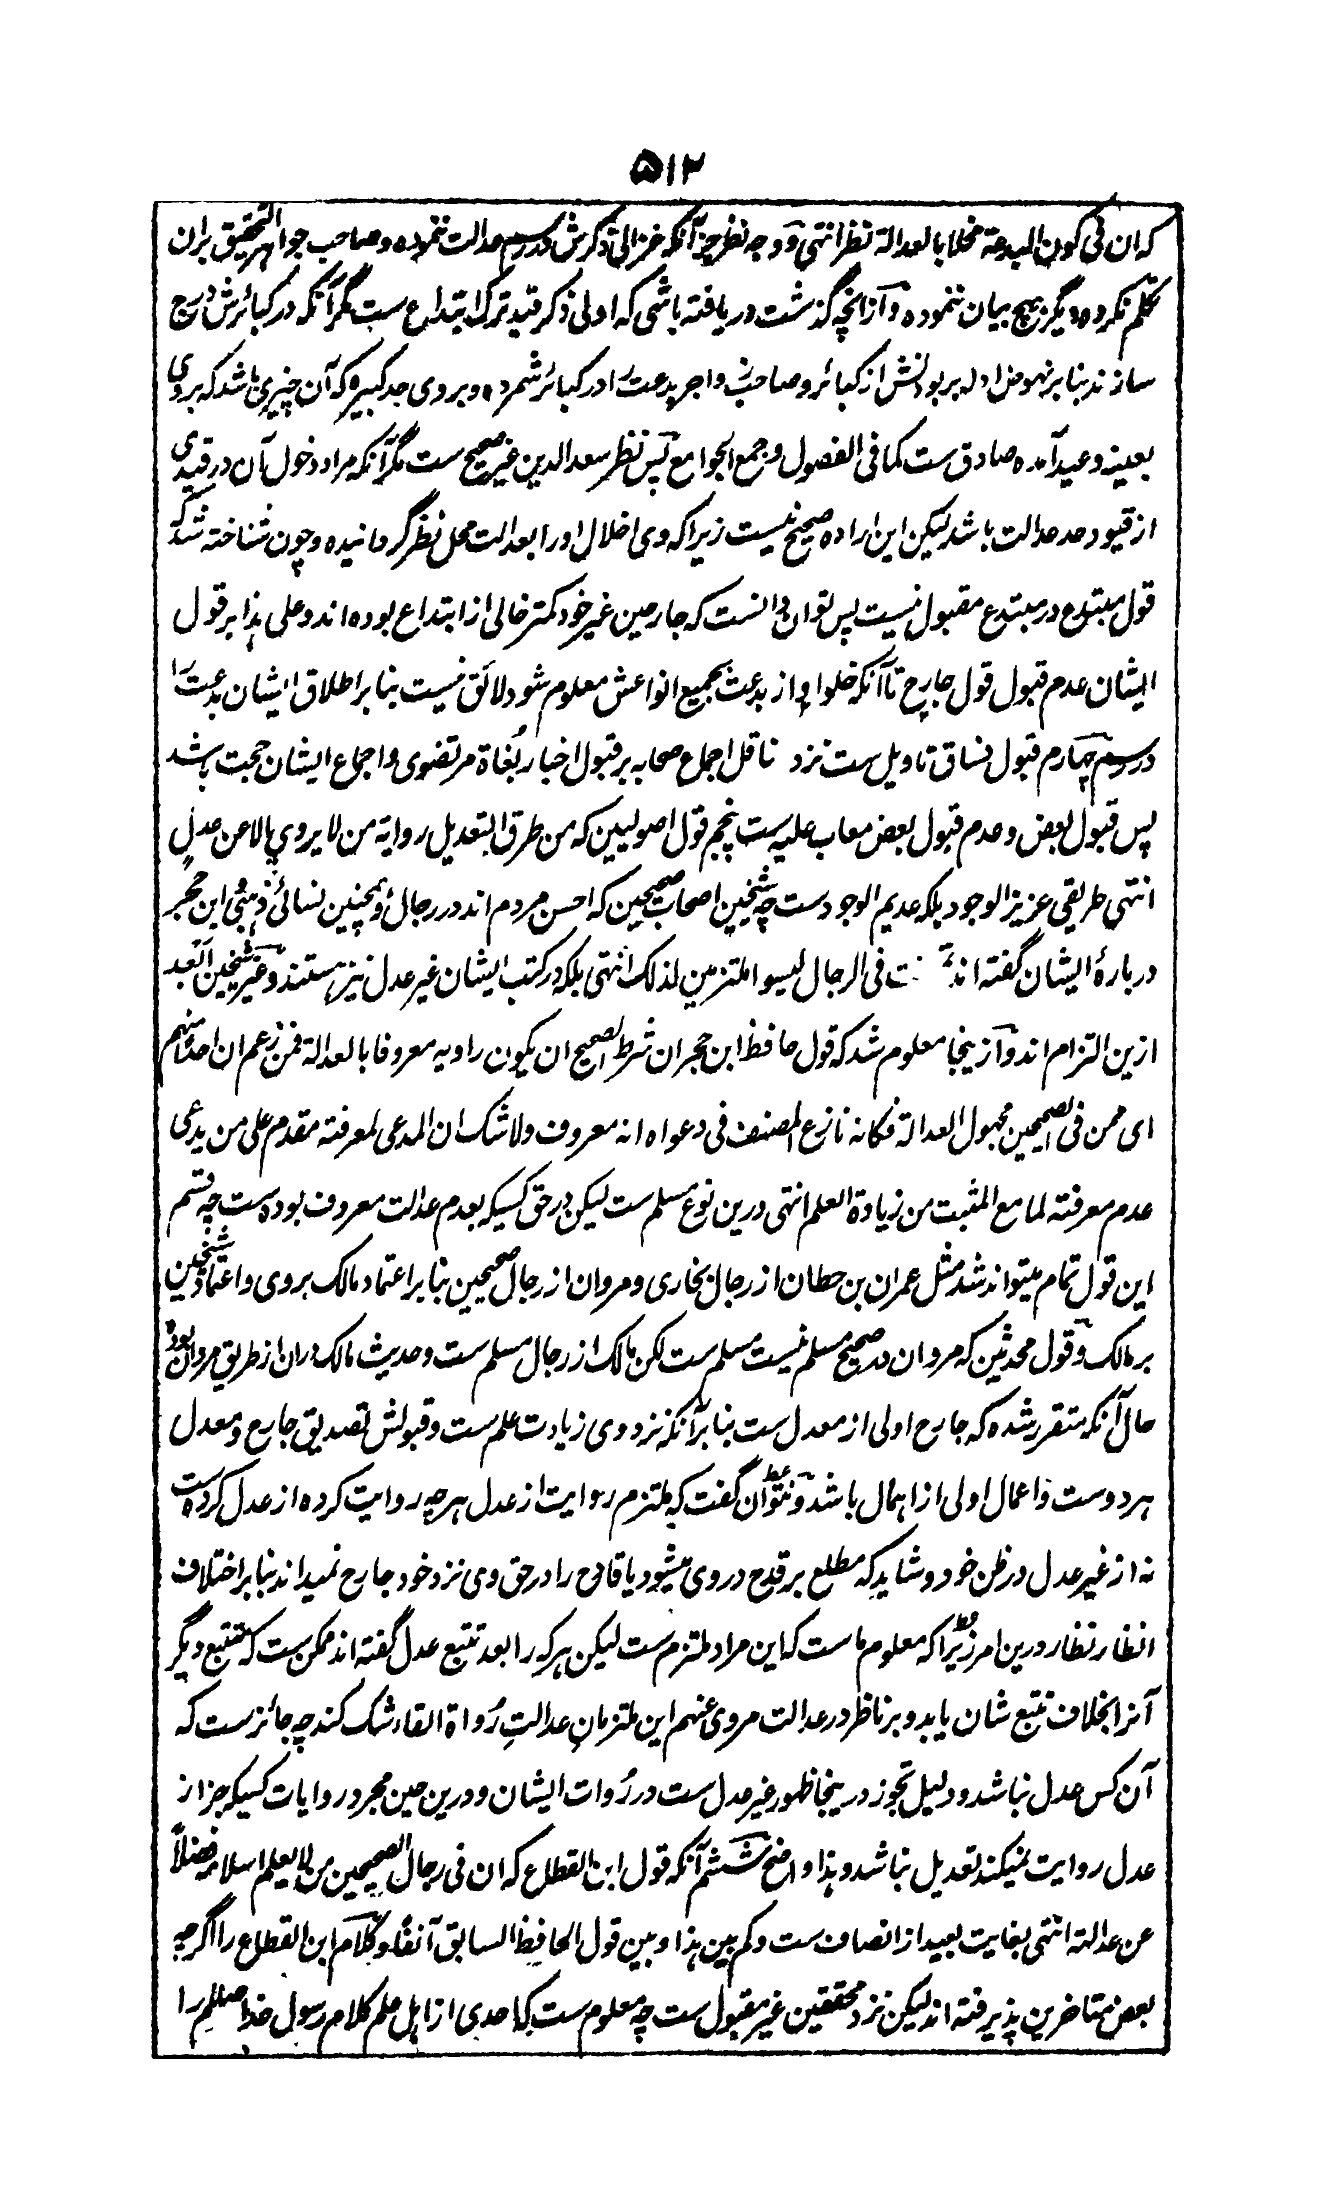 ۵۱۲
که ان فی کون البدعة مخلا بالعدالة نظر انتهی و وجه نظر جز آنکه غزالی ذکرش در رسم عدالت ننموده و صاحب جواهر التحقیق بران
تکلم نکرده دیگر هیچ بیان ننموده و از آنچه گذشت دریافته باشی که اولی ذکر قید ترک ابتداع ست مگر آنکه در کبائرش درج
سازند بنا بر نهوض ادله بر بودنش از کبائر و صاحب زواجر بدعت را در کبائر شمرده و بروی حد کبیره که آن چیزی باشد که بروی
بعینه وعید آمده صادق ست کما فی الفصول و جمع الجوامع پس نظر سعد الدین غیر صحیح ست مگر آنکه مراد دخول آن در قیدی
از قیود حد عدالت باشد لیکن این اراده صحیح نیست زیرا که وی اخلال او را بعدالت محل نظر گردانیده و چون شناخته شد که
قول مبتدع در مبتدع مقبول نیست پس توان دانست که جارحین غیر خود کمتر خالی از ابتداع بوده اند و علی هذا بر قول
ایشان عدم قبول قول جارح تا آنکه خلو او از بدعت بجمیع انواعش معلوم شود لائق نیست بنا بر اطلاق ایشان بدعت را
در رسم چهارم قبول فساق تاویل ست نزد ناقل اجماع صحابه بر قبول اخبار بُغاة مرتضوی و اجماع ایشان حجت باشد
پس قبول بعض و عدم قبول بعض معاب علیه ست پنجم قول اصولیین که من طرق التعدیل روایة من لا یروی الا عن عدلٍ
انتهی طریقی عزیز الوجود بلکه عدیم الوجود ست چه شیخین اصحاب صحیحین که احسن مردم اند در رجال و همچنین نسائی ذهبی و ابن حجر
دربارهٔ ایشان گفته اند فی الرجال لیسوا ملتزمین لذلک انتهی بلکه در کتب ایشان غیر عدل نیز هستند و غیر شیخین ابعد
ازین التزام اند و از ینجا معلوم شد که قول حافظ ابن حجر ان شرط الصحیح ان یکون راویه معروفا بالعدالة فمن زعم ان احدا منهم
ای ممن فی الصحیحین مجهول العدالة فکانه نازع المصنف فی دعواه انه معروف ولا شک ان المدعی لمعرفته مقدم علی من یدعی
عدم معرفته لما مع المثبت من زیادة العلم انتهی درین نوع مسلم ست لیکن در حق کسیکه بعدم عدالت معروف بوده ست چه قسم
این قول تمام میتواند شد مثل عمران بن حطان از رجال بخاری و مروان از رجال صحیحین بنا بر اعتماد مالک بروی و اعتماد شیخین
بر مالک و قول محدثین که مروان در صحیح مسلم نیست مسلم ست لکن مالک از رجال مسلم ست و حدیث مالک دران از طریق مروان بوده
حال آنکه متقرر شده که جارح اولی از معدل ست بنا بر آنکه نزد وی زیادت علم ست و قبولش تصدیق جارح و معدل
هر دوست و اعمال اولی از اهمال باشد و نتوان گفت که ملتزم روایت از عدل هر چه روایت کرده از عدل کرده ست
نه از غیر عدل در ظن خود و شاید که مطلع بر قدح در وی میشود یا قادح را در حق وی نزد خود جارح نمیداند بنا بر اختلاف
انظار نظار درین امر زیرا که معلوم ماست که این مراد ملتزم ست لیکن هر که را بعد تتبع عدل گفته اند ممکن ست که متتبع دیگر
آنرا بخلاف تتبع شان یابد و بر ناظر در عدالت مروی عنهم این ملتزمان عدالتِ رُواة القاء شک کند چه جائز ست که
آن کس عدل نباشد و دلیل تجوز درینجا ظهور غیر عدل ست در رُوات ایشان و درین حین مجرد روایات کسیکه جز از
عدل روایت نمیکند تعدیل نباشد و هذا واضح ششم آنکه قول ابن القطاع که ان فی رجال الصحیحین من لا یعلم اسلامه فضلاً
عن عدالته انتهی بغایت بعید از انصاف ست و کم بین هذا و بین قول الحافظ السابق آنفًا و کلام ابن القطاع را اگرچه
بعض متاخرین پذیرفته اند لیکن نزد محققین غیر مقبول ست چه معلوم ست که احدی از اهل علم کلام رسول خدا صلعم را